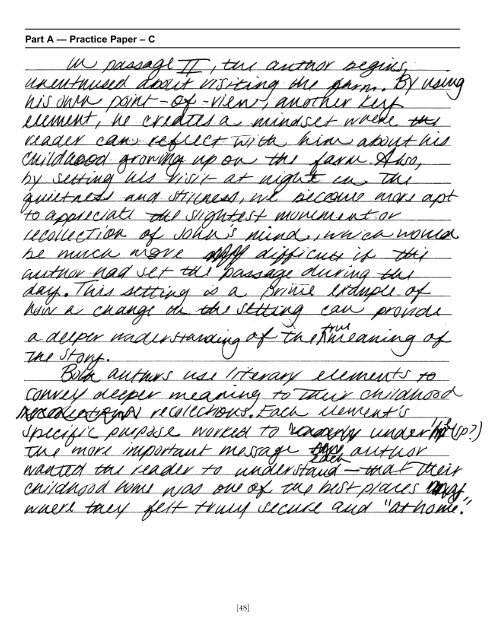 Part A — Practice Paper – C
In passage II, the author begins,
unenthused about visiting the farm. By using
his own point-of-view, another key
element, he creates a mindset where the
reader can reflect with him about his
childhood growing up on the farm. Also,
by setting his visit at night in the
quietness and stillness, we become more apt
to appreciate the slightest movement or
recollection of John's mind, which would
be much more difficult if the
author had set the passage during the
day. This setting is a prime example of
how a change in the setting can provide
a deeper understanding of the true meaning of
the story.
Both authors use literary elements to
convey deeper meaning to their childhood
recolections. Each element's
specific purpose worked to under (sp?)
the more important message each author
wanted the reader to understand – that their
childhood home was one of the best places
where they felt truly secure and "at home."
[48]